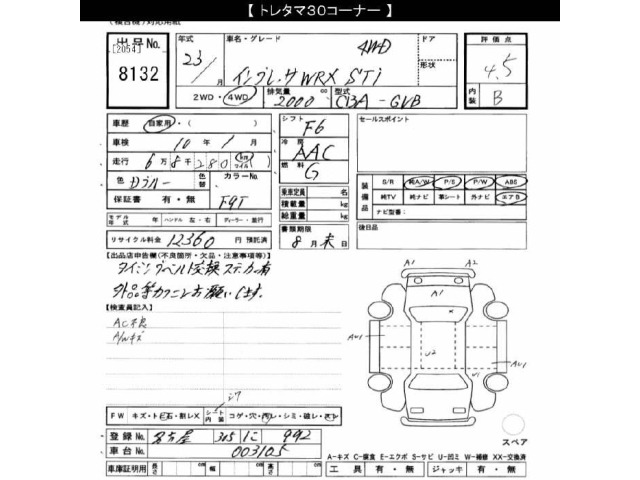 【 トレタマ30コーナー 】
出品No.
[2054]
8132
年式 23/ 月
車名・グレード 4WD
インプレッサWRX STi
ドア
形状
評価点 4.5
内装 B
2WD・4WD
排気量 2000 cc
型式 CBA-GVB
車歴 自家用・( )
車検 10年 1月
走行 6万8千280 km マイル
色 Dブルー 色替 カラーNo.
保証書 有・無 F9T
シフト F6
冷房 AAC
燃料 G
乗車定員 名
積載量 kg
総重量 kg
書類期限
8月末日
セールスポイント
装備品 S/R 純A/W P/S P/W ABS
純TV 純ナビ 革シート 外ナビ エアB
ナビ型番:
後日品
モデル年式 年 ハンドル 左・右 ディーラー・並行
リサイクル料金 12360 円 預託済
【出品店申告欄(不良箇所・欠品・注意事項等)】
タイミングベルト交換ステッカー有
外品等カクニンお願いします。
【検査員記入】
AC不良
A/Wキズ
A1
A2
A1
AU1
U2
AU1
U1
FW キズ・トビ石・削レX
シート内装
コゲ・穴・汚レ・シミ・破レ・スレ
登録No. 名古屋 305 に 992
車台No. 003105
スペア
A-キズ C-腐食 E-エクボ S-サビ U-凹ミ W-補修 XX-交換済
車庫証明用 長さ cm 幅 cm 高さ cm
工具 有・無 ジャッキ 有・無